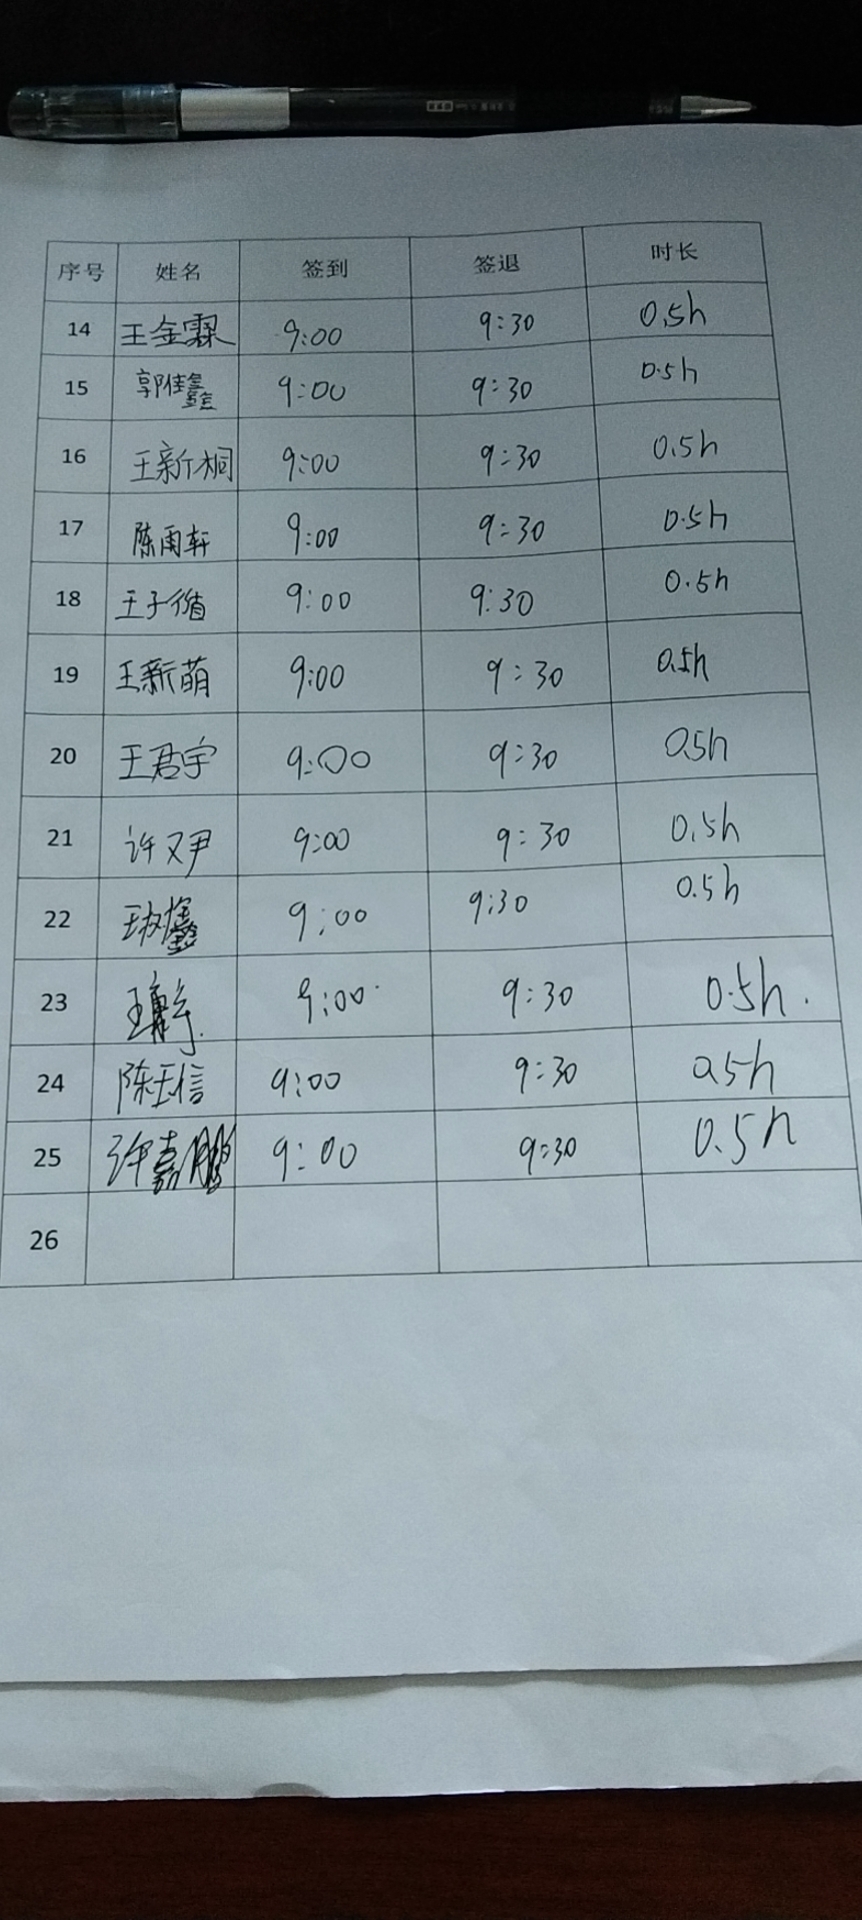 序号 姓名 签到 签退 时长
14 王金霖 9:00 9:30 0.5h
15 郭佳鑫 9:00 9:30 0.5h
16 王新桐 9:00 9:30 0.5h
17 陈雨轩 9:00 9:30 0.5h
18 王子循 9:00 9:30 0.5h
19 王新萌 9:00 9:30 0.5h
20 王君宇 9:00 9:30 0.5h
21 许又尹 9:00 9:30 0.5h
22 9:00 9:30 0.5h
23 9:00 9:30 0.5h.
24 陈玉信 9:00 9:30 0.5h
25 许嘉鹏 9:00 9:30 0.5h
26